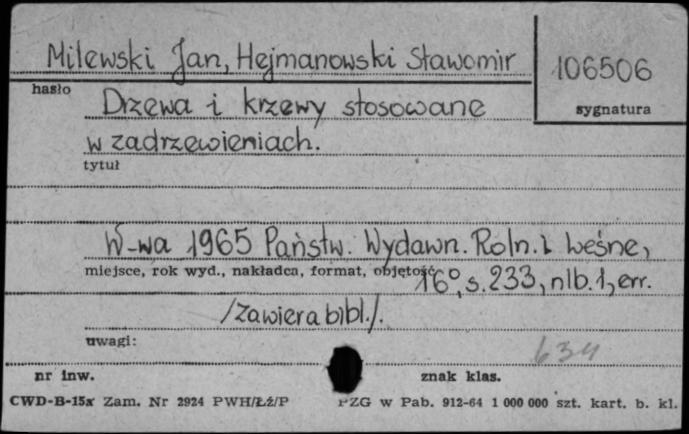 Milewski Jan, Hejmanowski Sławomir
106506
hasło
sygnatura
Drzewa i krzewy stosowane
w zadrzewieniach.
tytuł
W-wa 1965 Państw. Wydawn. Roln. i Leśne,
miejsce, rok wyd., nakładca, format, objętość
16°, s. 233, nlb. 1, err.
/zawiera bibl./.
uwagi:
634
nr inw.
znak klas.
CWD-B-15x Zam. Nr 2924 PWH/Łź/P
PZG w Pab. 912-64 1 000 000 szt. kart. b. kl.